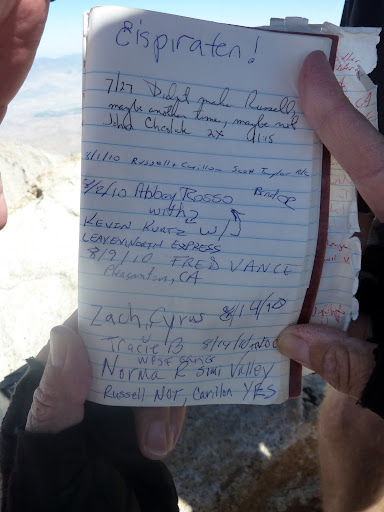 Eispiraten!
7/27 Didn't make Russell,
maybe another time, maybe not
John 2x
8/1/10 Russell & Carillon Scott
8/2/10 Abbey Rosso
with
Kevin Kurtz w/
Leavenworth Express
8/9/10 FRED VANCE
Pleasanton, CA
Zach, Cyrus 8/14/10
Tracie B 8/14/10
West gang
Norma R Simi Valley
Russell NOT, Carillon YES